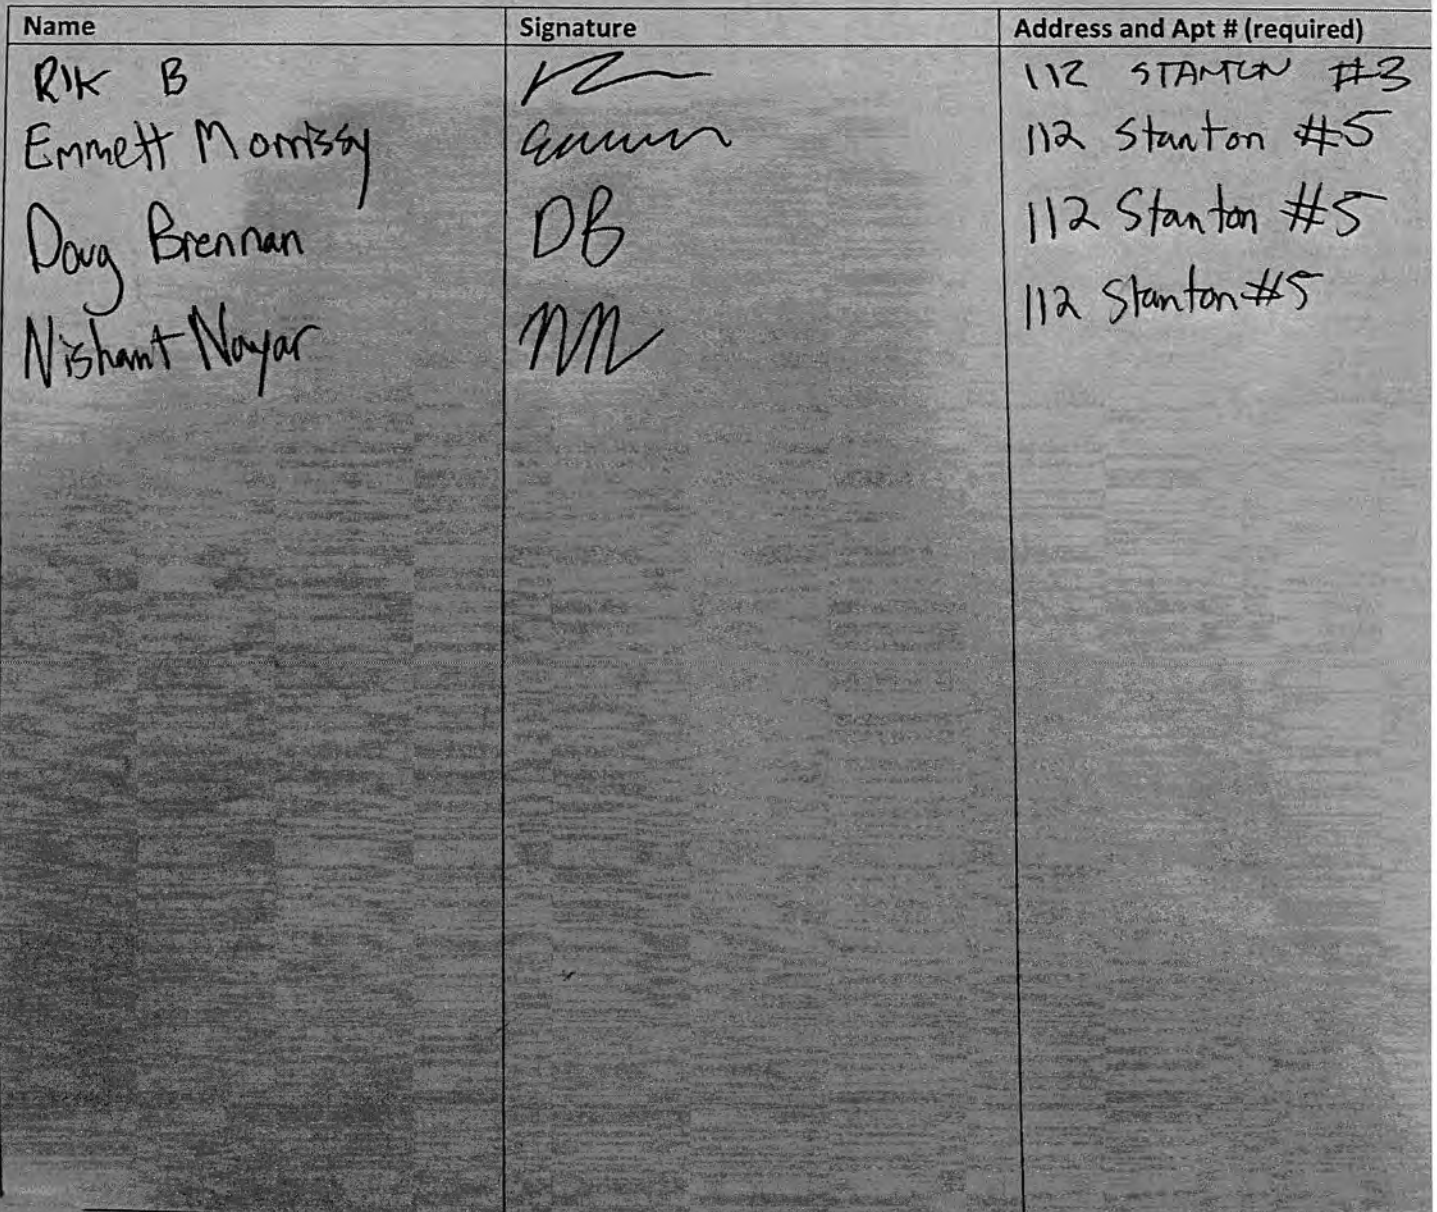 Name Signature Address and Apt # (required)
RIK B 112 STANTON #3
Emmett Morrissy 112 Stanton #5
Doug Brennan DB 112 Stanton #5
Nishant Nayar NN 112 Stanton #5